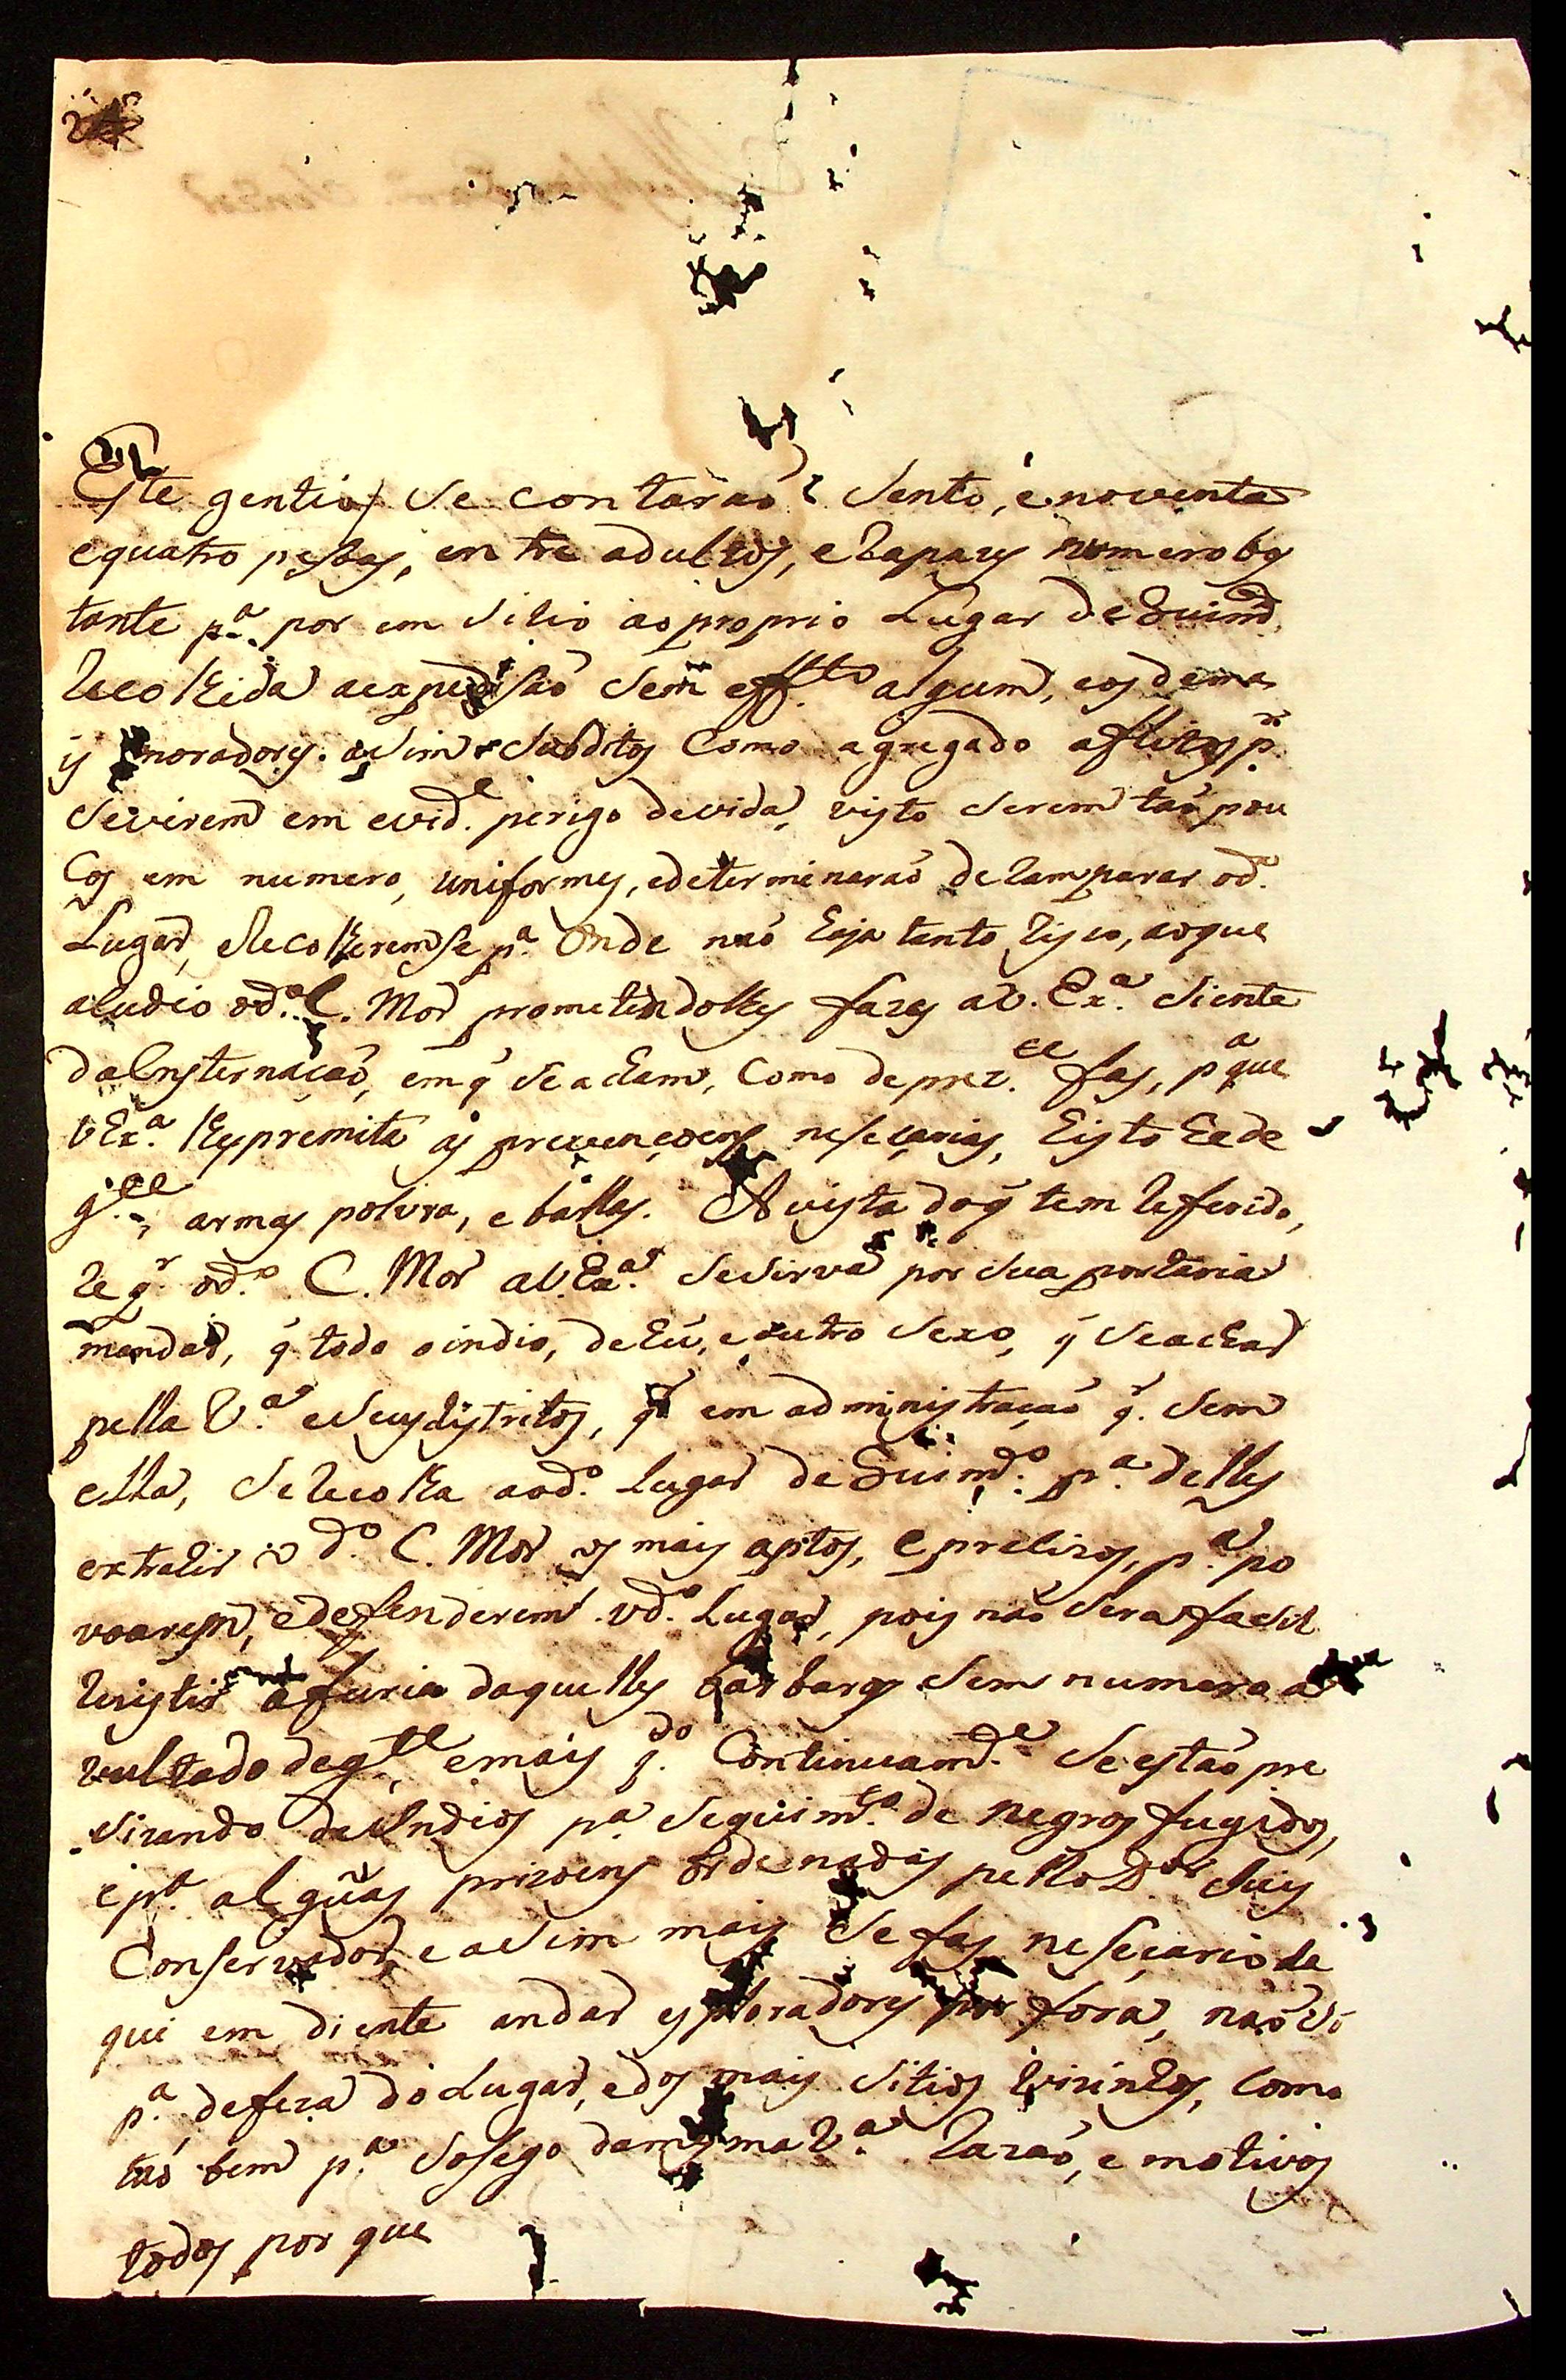 Este gentio se contaraõ Sento, e noventa
e quatro pesoas, entre adultos, e rapazes numero bas
tante p.ª por em Sitio ao proprio Lugar de Guim.
recolhida a expedisaõ Sem eff.to algum, e os dema
is moradores. asim Subditos Como agregado aflitos p.r
Se virem em evid.e perigo de vida, visto Serem taõ pou
Cos em numero, uniformes, e determinaraõ dezamparar o d.o
Lugar, e recolheremse p.ª Onde naõ haja tanto risco, ao que
aludio o d.o C. Mor prometendolhes fazer a V. Ex.ª Siente
da Consternaçaõ, em q̃ Se acham, Como de prez.te fas, p.ª que
V Ex.ª lhes premita as prevençoens nesesarias, histo he de
g.te, armas polvra, e ballas. A vista do q̃ tem referido,
re q.r o d.o C. Mor a V. Ex.ª Se Sirva por Sua portaria
mandar, q̃ todo o indio, de hũ, e outro Sexo, q̃ Se achar
pella V.ª e Seus distritos, q.r em administraçaõ q.r Sem
ella, Se recolha ao d.o Lugar de Guim.o p.ª delles
extrahir o d.o C. Mor os mais aptos, e precizos, p.ª po
voarem, e defenderem o d.o Lugar, pois naõ Sera facil
rezistir a furia daquelles barbaros Sem numero a
vultado de g.te, e mais q.do Continuam.te Se estaõ pre
sizando de Indios p.ª Seguim.to de negros fugidos,
e p.ª algũas prizoens ordenadas pello D.or Juis
Conservador, e asim mais Se fas nesesario da
qui em diente andar esploradores por fora, naõ Só
p.ª defeza do Lugar, e dos mais Sitios vizinhos, Como
taõ bem p.ª Sosego da mesma V.ª razaõ, e motivos
todos por que